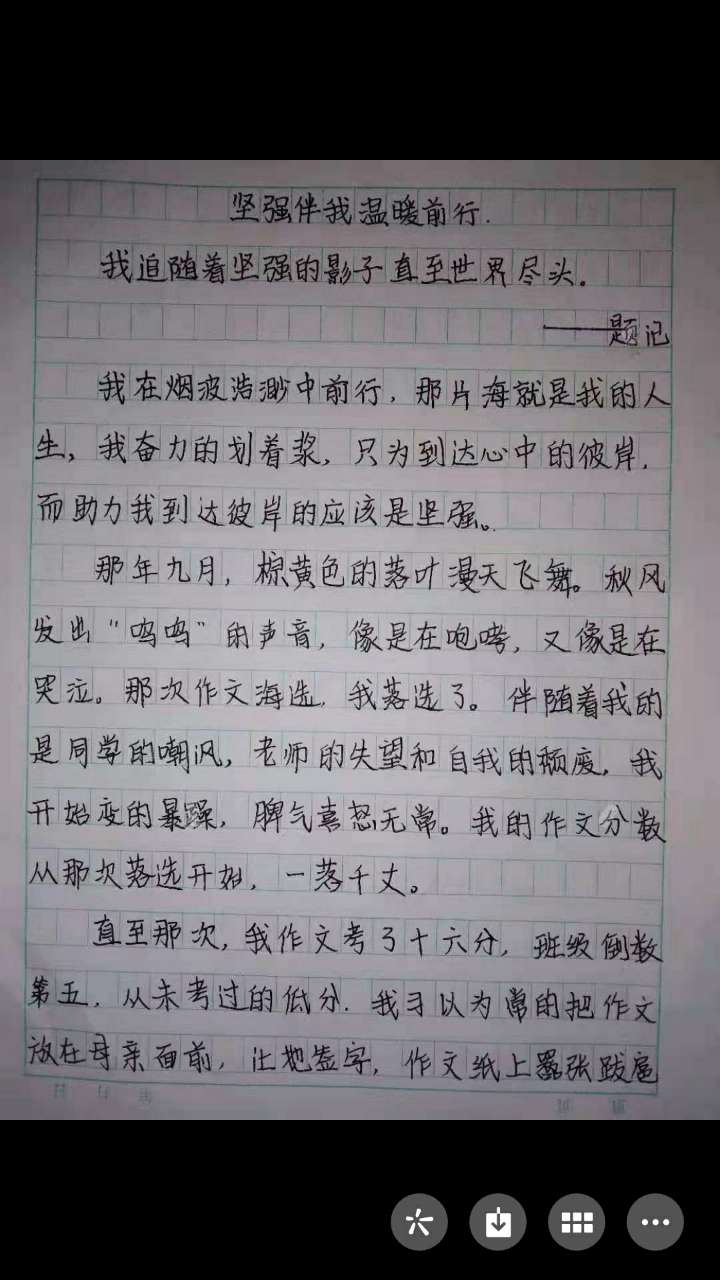 坚强伴我温暖前行.
我追随着坚强的影子直至世界尽头。
——题记
我在烟波浩渺中前行，那片海就是我的人
生，我奋力的划着浆，只为到达心中的彼岸，
而助力我到达彼岸的应该是坚强。
那年九月，棕黄色的落叶漫天飞舞。秋风
发出“呜呜”的声音，像是在咆哮，又像是在
哭泣。那次作文海选，我落选了。伴随着我的
是同学的嘲讽，老师的失望和自我的颓废，我
开始变的暴躁，脾气喜怒无常。我的作文分数
从那次落选开始，一落千丈。
直至那次，我作文考了十六分，班级倒数
第五，从未考过的低分.我习以为常的把作文
放在母亲面前，让她签字，作文纸上嚣张跋扈